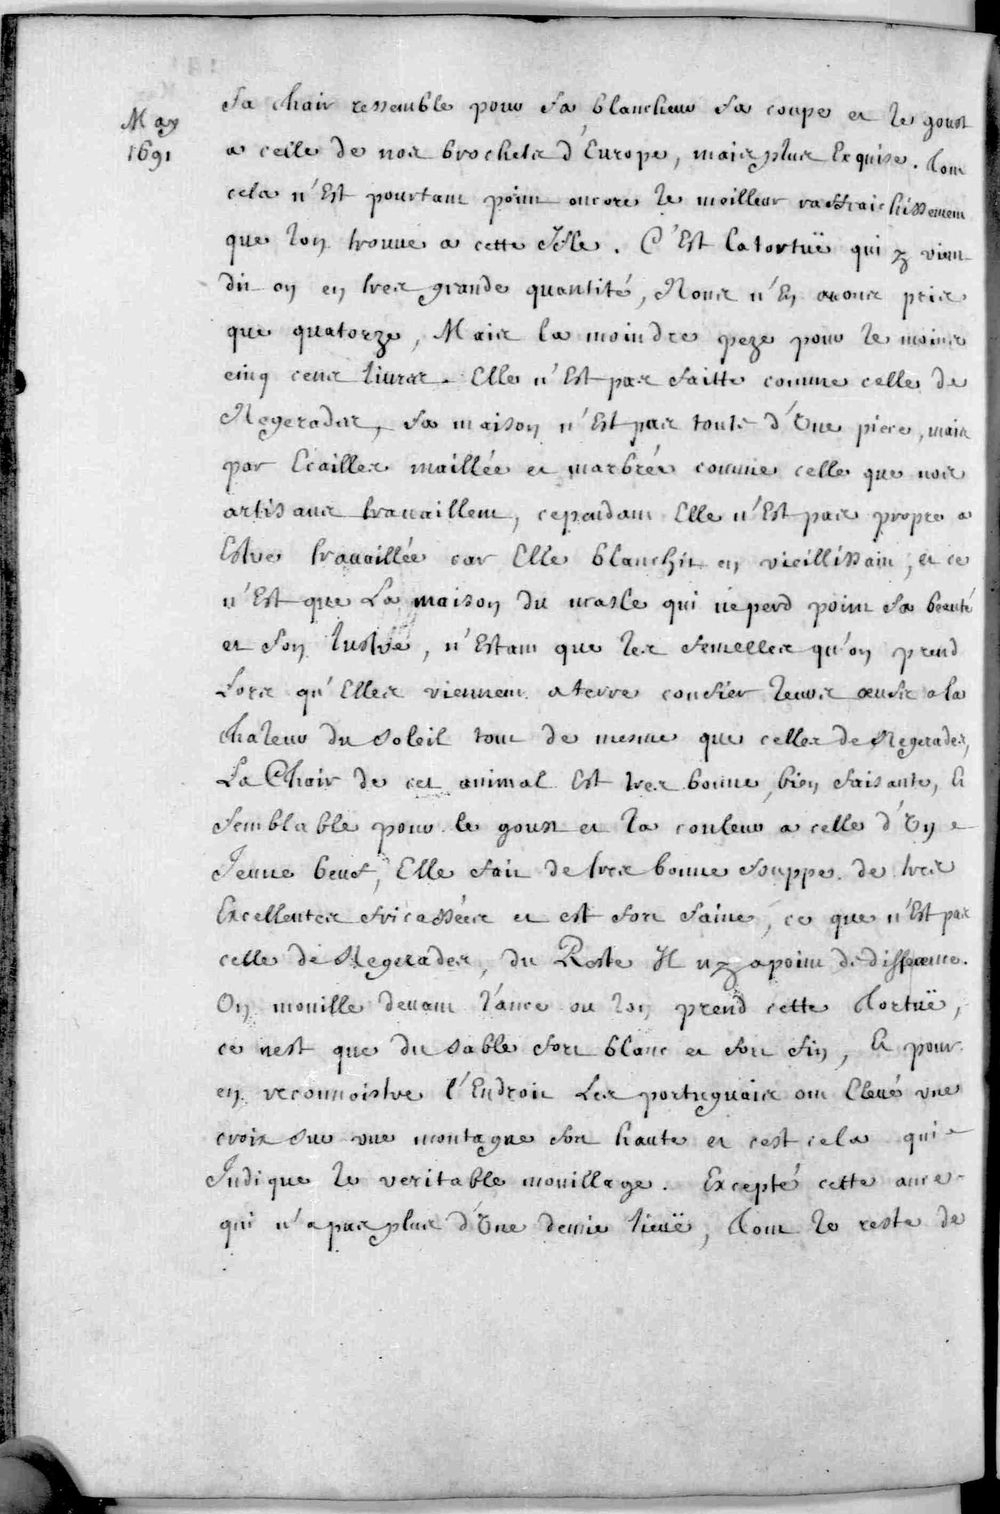 May
1691
Sa chair ressemble pour sa blancheur sa coupe et le goust
a celle de nos brochets d'Europe, mais plus Exquise. Tout
cela n'Est pourtant point encore le meilleur raffraichissement
que lon trouue a cette Isle. C'Est la tortuë qui y vient
dit on en tres grande quantité, Nous n'En auons pris
que quatorze, Mais la moindre peze pour le moins
cinq cens liures. Elle n'Est pas faitte comme celle de
Negerades, sa maison n'Est pas toute d'Une piece, mais
par Ecailles maillée et marbrée comme celle que nos
artisans trauaillent, cependant Elle n'Est pas propre a
Estre trauaillée car Elle blanchit en vieillissant, et ce
n'Est que La maison du masle qui ne perd point sa beauté
et son lustre, n'Estant que les femelles qu'on prend
Lors qu'Elles viennent a terre confier leurs oeufs a la
chaleur du soleil tout de mesme que celles de Negerades,
La Chair de cet animal Est tres bonne, bien faisante, Et
semblable pour le goust et la couleur a celle d'Un
Jeune beuf, Elle fait de tres bonne souppe de tres
Excellentes fricassées et est fort saine, ce que n'Est pas
celle de Negerades, du Reste Il n'y a point de difference.
On mouille deuant l'ance ou lon prend cette Tortuë,
ce nest que du sable fort blanc et fort fin, Et pour
en reconnoistre l'Endroit Les portuguais ont Eleué vne
croix sur vne montagne fort haute et cest cela qui
Indique le veritable mouillage. Excepté cette ance
qui n'a pas plus d'Une demie lieuë, Tout le reste de